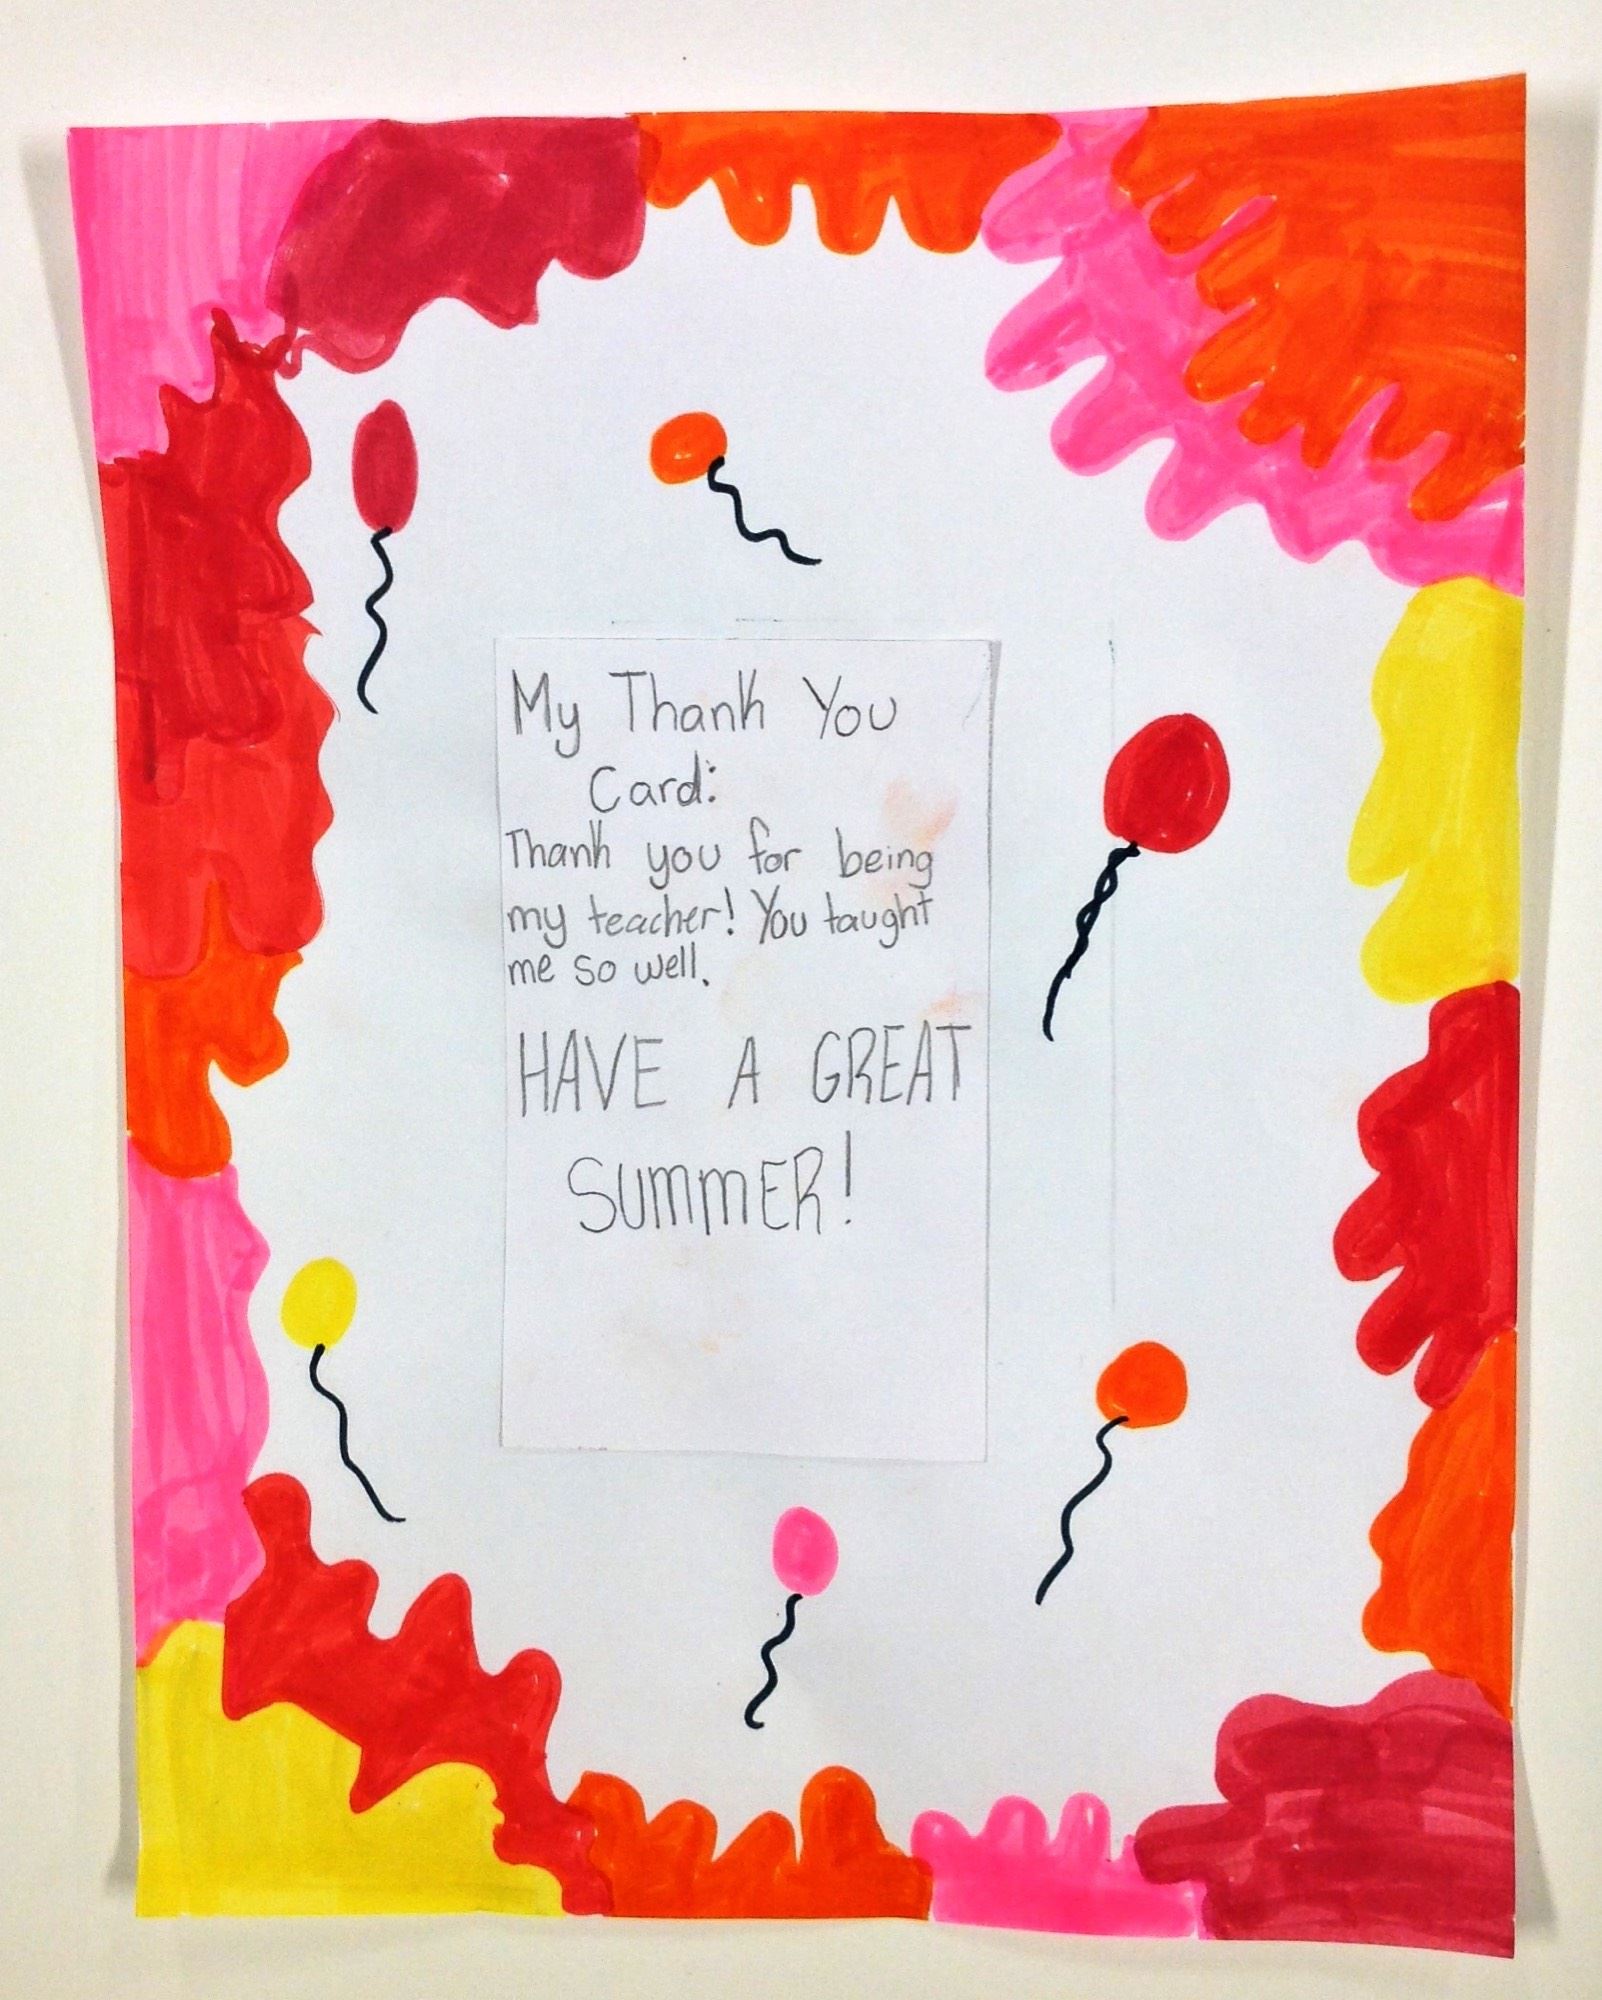 My Thank You
Card:
Thank you for being
my teacher! You taught
me so well.
HAVE A GREAT
SUMMER!